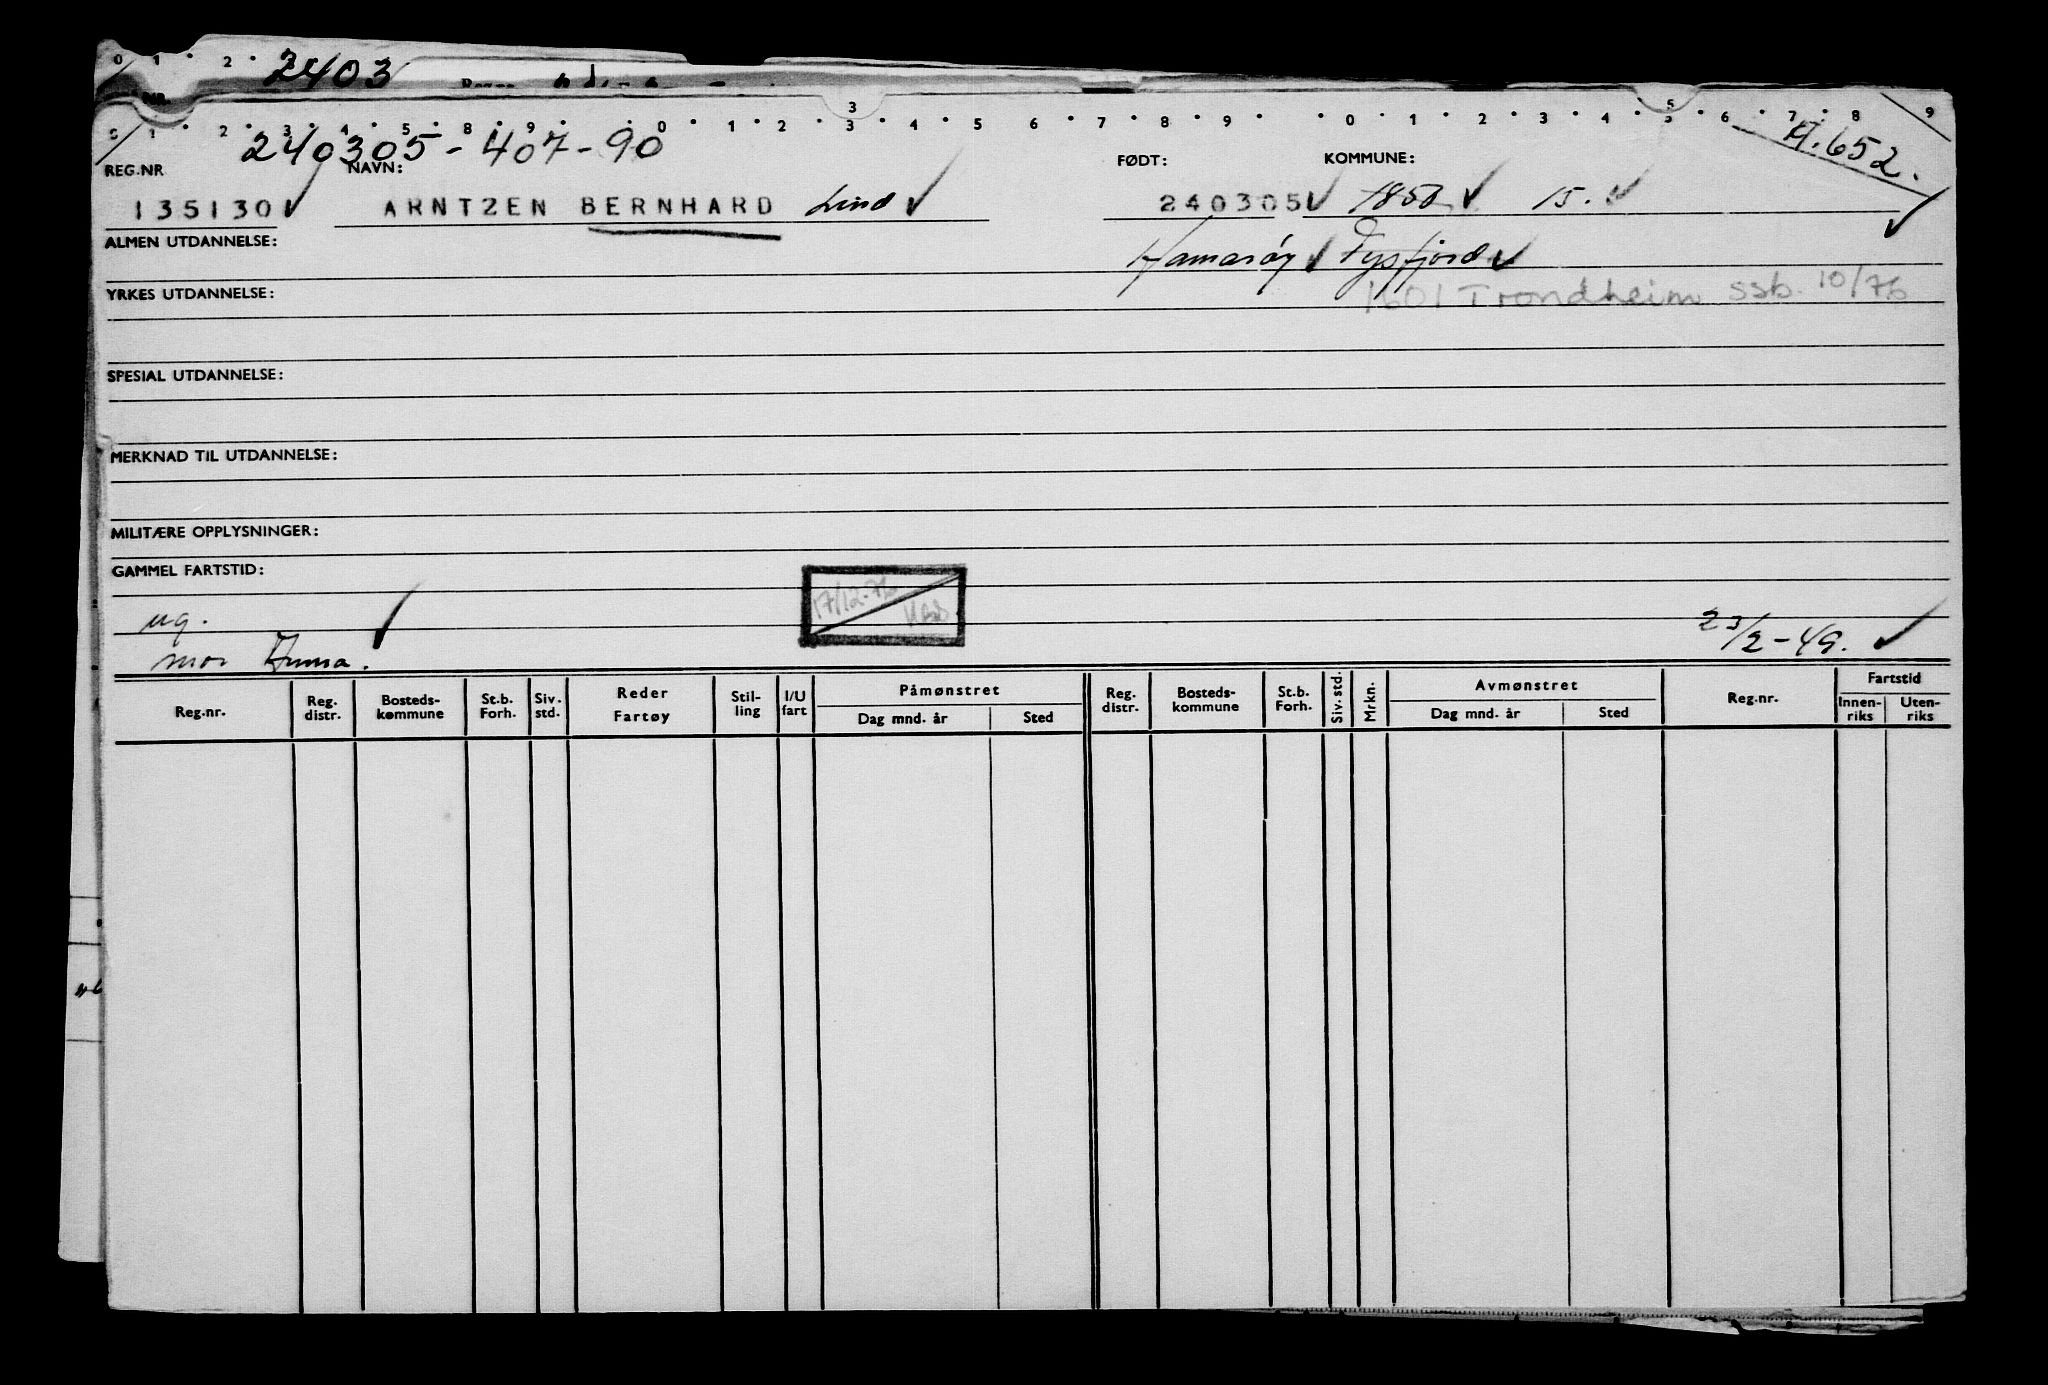 2403
240305-407-90
A.652.
REG.NR NAVN: FØDT: KOMMUNE:
135130 ARNTZEN BERNHARD Lind 240305 1850 15.
ALMEN UTDANNELSE: Hamarøy Tysfjord
YRKES UTDANNELSE: 1601 Trondheim ssb. 10/76
SPESIAL UTDANNELSE:
MERKNAD TIL UTDANNELSE:
MILITÆRE OPPLYSNINGER:
GAMMEL FARTSTID:
17/12-76
ug. 23/2-49.
mor Anna.
Reg.nr. Reg. distr. Bosteds-kommune St.b. Forh. Siv. std. Reder Fartøy Stil-ling I/U fart Påmønstret Dag mnd. år Sted Reg. distr. Bosteds-kommune St.b. Forh. Siv. std. Mrkn. Avmønstret Dag mnd. år Sted Reg.nr. Fartstid Innen-riks Uten-riks